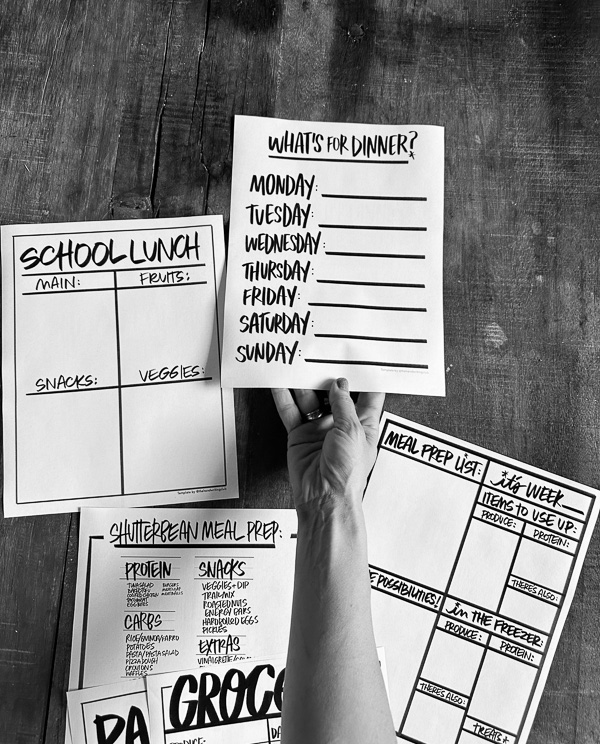 WHAT'S FOR DINNER?
MONDAY:
TUESDAY:
WEDNESDAY:
THURSDAY:
FRIDAY:
SATURDAY:
SUNDAY:
SCHOOL LUNCH
MAIN: FRUITS:
SNACKS: VEGGIES:
MEAL PREP LIST:
it's WEEK
ITEMS TO USE UP:
PRODUCE: PROTEIN:
THERES ALSO:
E POSSIBILITIES!
in THE FREEZER:
PRODUCE: PROTEIN:
THERES ALSO:
TREATS +
SHUTTERBEAN MEAL PREP:
PROTEIN
TUNA SALAD
EGG BITES
BURGERS
MEATLOAF
MEATBALLS
CARBS
RICE/QUINOA/FARRO
POTATOES
PASTA/PASTA SALAD
PIZZA DOUGH
CROUTONS
WAFFLES
SNACKS
VEGGIES + DIP
TRAIL MIX
ROASTED NUTS
ENERGY BARS
HARDBOILED EGGS
PICKLES
EXTRAS
VINAIGRETTE/
GROC
PRODUCE: DA
DA